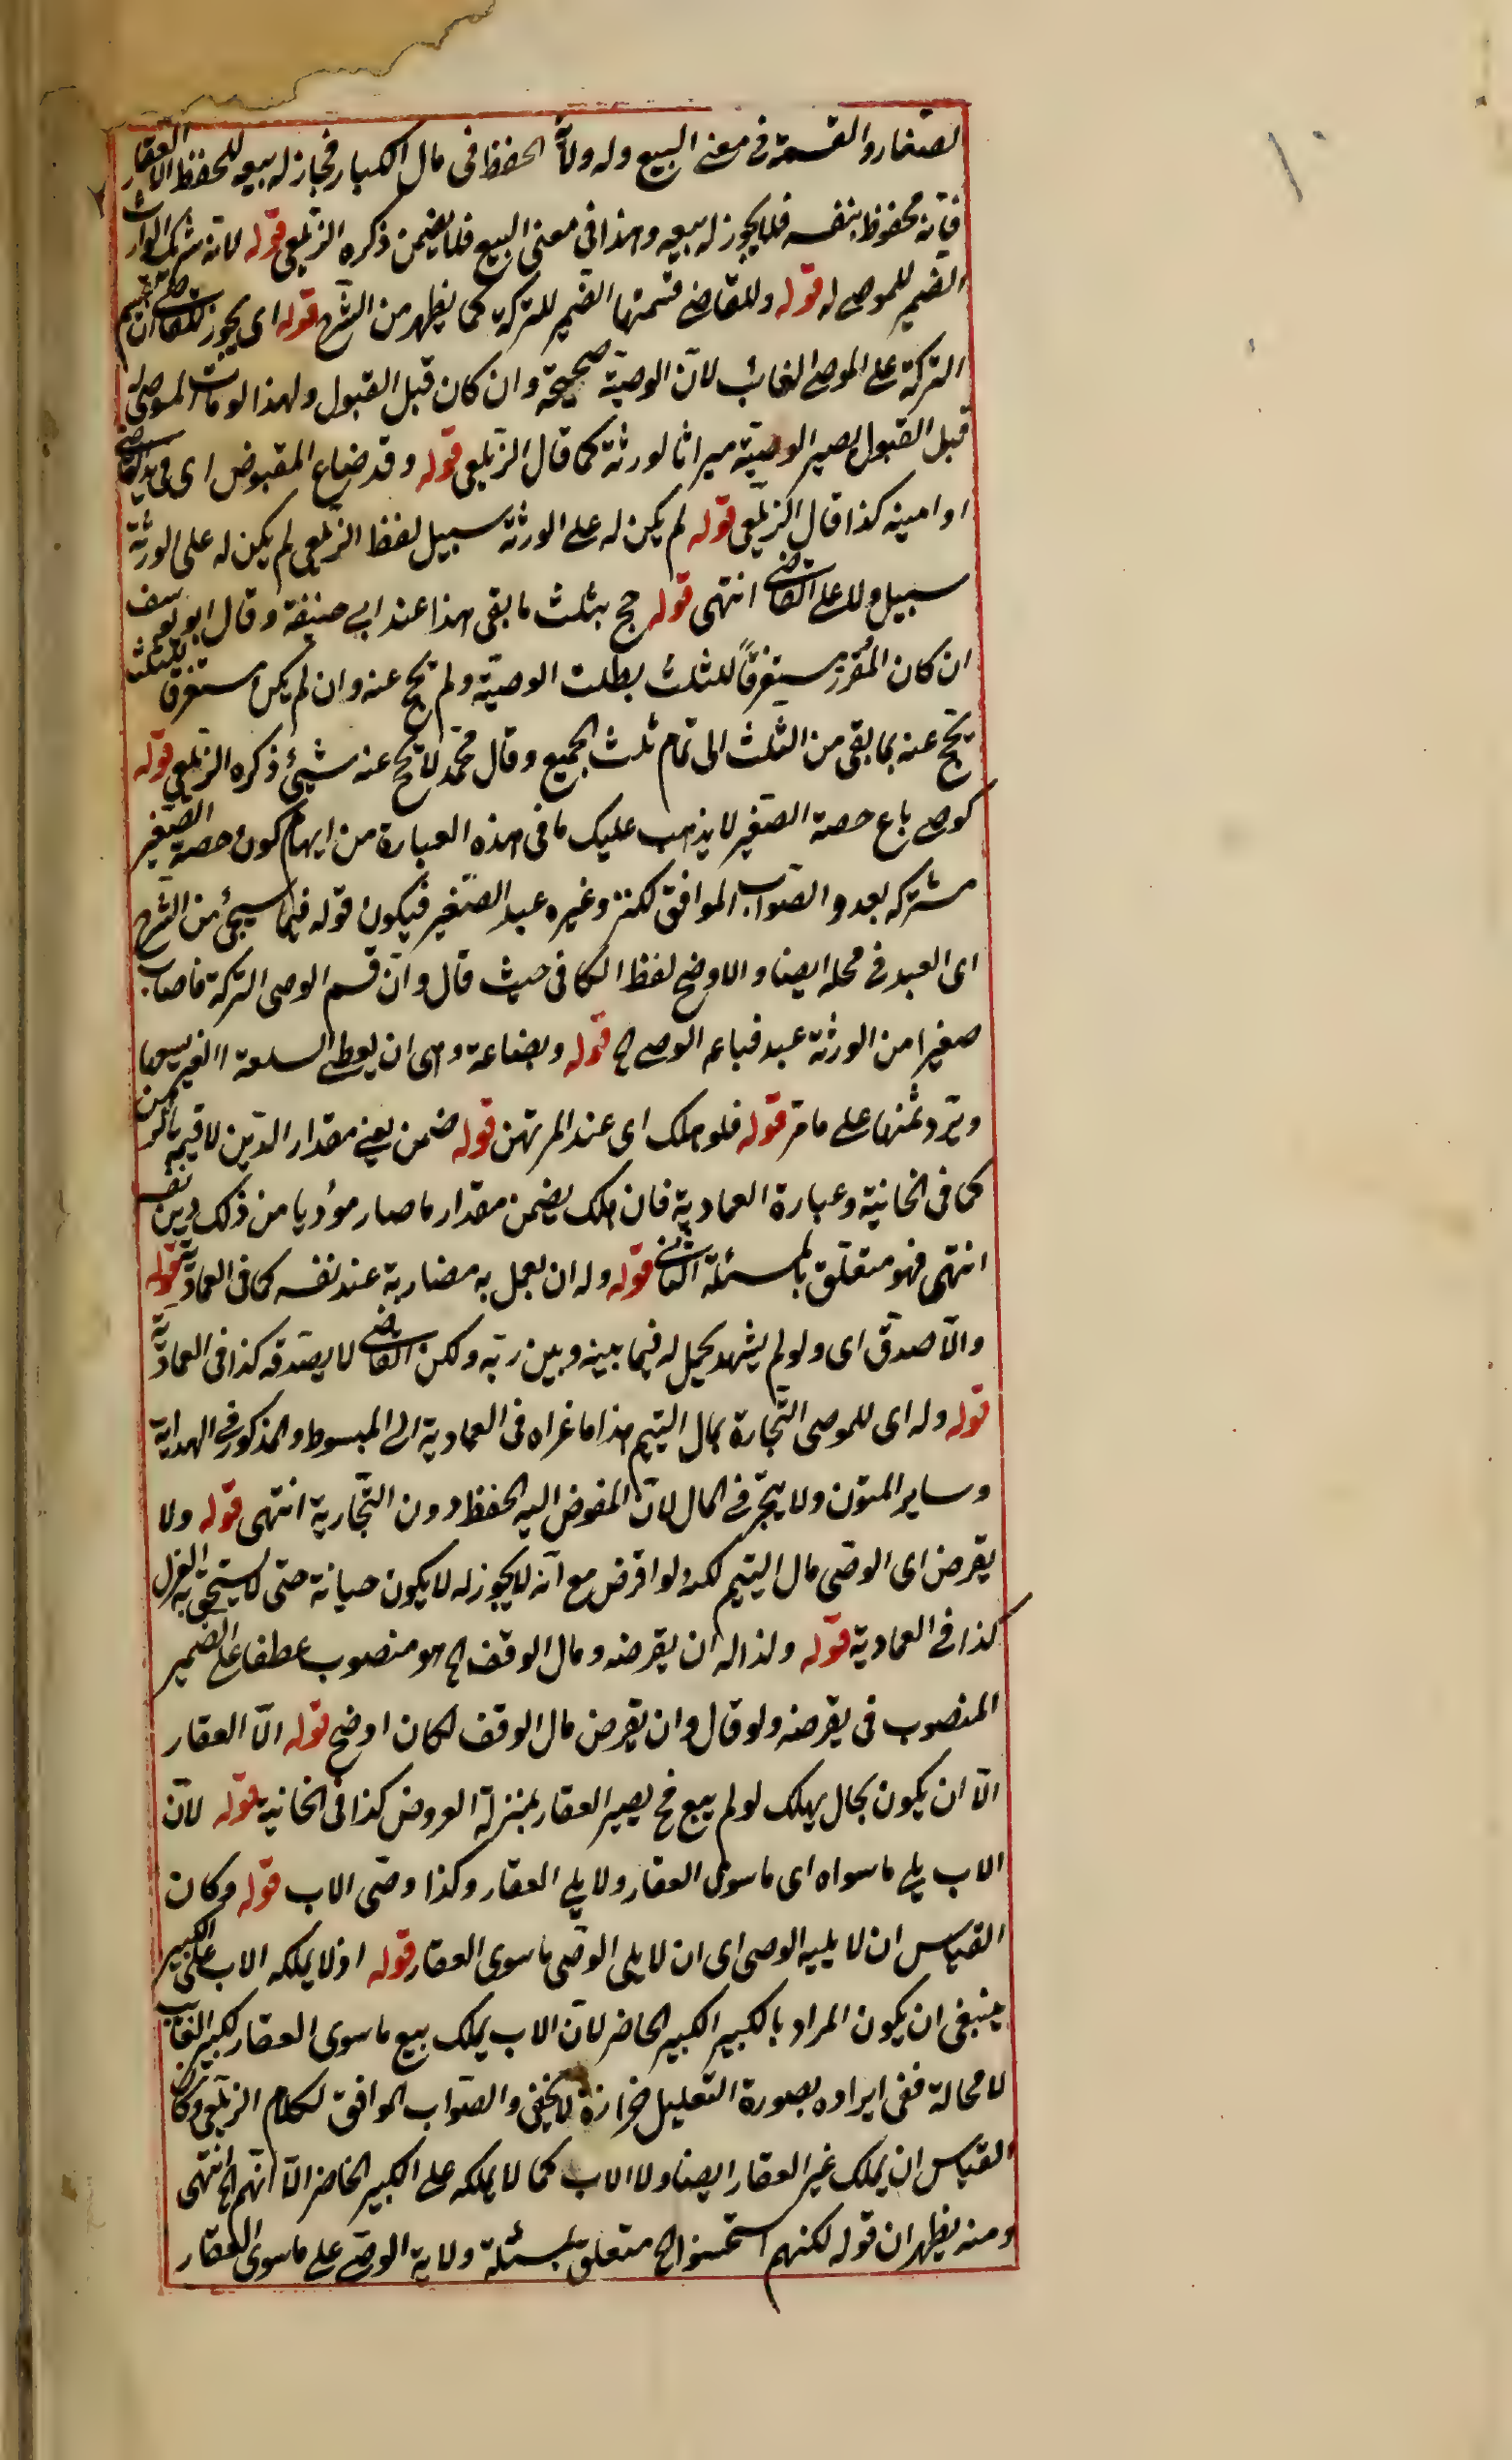 لصغار والقسمة في معنى البيع وله ولاية الحفظ في مال الكبار فجاز له بيعه للحفظ الا العقار
فانه محفوظ بنفسه فلا يجوز له بيعه وهذا في معنى البيع فلا يضمن ذكره الزيلعي قوله لانه شريك الوارث
الضمير للموصى له قوله وللقاضي قسمتها الضمير للتركة كما يظهر من الشرح قوله اى يجوز للقاضي ان يقسم
التركة على الموصى الغائب لان الوصية صحيحة وان كان قبل القبول ولهذا لو مات الموصى له
قبل القبول يصير الوصية ميراثا لورثة كما قال الزيلعي قوله وقد ضاع المقبوض اى في يد القاضي
او امينه كذا قال الزيلعي قوله لم يكن له على الورثة سبيل لفظ الزيلعي لم يكن له على الورثة
سبيل ولا على القاضي انتهى قوله حج بثلث ما بقى هذا عند ابي حنيفة وقال ابو يوسف
ان كان المفرز مستغرقاً للثلث بطلت الوصية ولم يحج عنه وان لم يكن مستغرقا للثلث
يحج عنه بما بقى من الثلث الى تمام ثلث الجميع وقال محمد لا يحج عنه شيئ ذكره الزيلعي قوله
كوصى باع حصة الصغير لا يذهب عليك ما في هذه العبارة من ايهام كون حصة الصغير
مشتركه بعد والصواب الموافق لكنز وغيره عبد الصغير فيكون قوله فيما سيجئ من الشرح
اى العبد في محله ايضا والاوضح لفظ الكافى حيث قال وان قسم الوصى التركة فاصاب
صغيرا من الورثة عبد فباعه الوصى الخ قوله وبضاعة وهى ان يعطى السلعة الغير يبيعها
ويرد ثمنها على ما مر قوله فلو هلك اى عند المرتهن قوله ضمن يعنى مقدار الدين لا قيمة الرهن
كما في الخانية وعبارة العمادية فان هلك يضمن مقدار ما صار مؤديا من ذلك دين نفسه
انتهى فهو متعلق بالمسئلة الثانى قوله وله ان يعمل به مضاربة عند نفسه كما في العمادية قوله
والا صدق اى ولو لم يشهد يحل له فيما بينه وبين ربه ولكن القاضي لا يصدقه كذا في العمادية
قوله وله اى للموصى التجارة بمال اليتيم هذا ما غراه في العمادية الى المبسوط والمذكور في الهداية
وساير المتون ولا يتجر في المال لان المفوض اليه الحفظ دون التجارية انتهى قوله ولا
يقرض اى الوصى مال اليتيم لكنه لو اقرض مع انه لا يجوز له لا يكون خيانة حتى لا يستحق به العزل
كذا في العمادية قوله ولذا له ان يقرضه ومال الوقف الخ هو منصوب عطفا على الضمير
المنصوب في يقرضه ولو قال وان يقرض مال الوقف لكان اوضح قوله الا العقار
الا ان يكون بحال يهلك لو لم يبع فح يصير العقار بمنزلة العروض كذا في الخانية قوله لان
الاب يلى ما سواه اى ما سوى العقار ولا يلى العقار وكذا وصى الاب قوله وكان
القياس ان لا يليه الوصى اى ان لا يلى الوصى ما سوى العقار قوله اذ لا يملكه الاب على الكبير
ينبغى ان يكون المراد بالكبير الكبير الحاضر لان الاب يملك بيع ما سوى العقار لكبير الغائب
لا محالة ففى ايراده بصورة التعليل حزازة لا يخفى والصواب الموافق لكلام الزيلعي وكان
القياس ان يملك غير العقار ايضا ولا الاب كما لا يملكه على الكبير الحاضر الا انهم الخ انتهى
ومنه يظهر ان قوله لكنهم استحسنوا الخ متعلق بمسئلة ولاية الوصى على ما سوى العقار